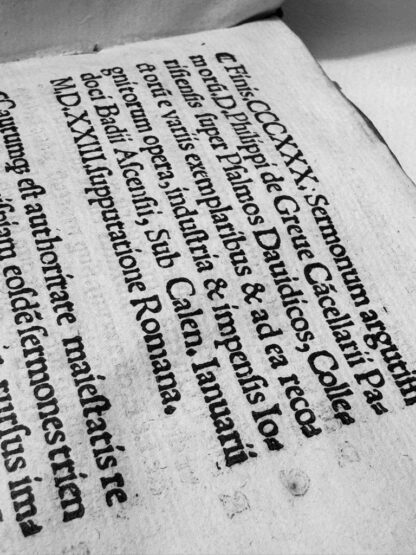 ¶ Finis. CCCXXX. Sermonum argutiſſi
morū. D. Philippi de Greue Cācellarii Pa⸗
riſienſis ſuper Pſalmos Dauidicos, Colle⸗
ctorū e variis exemplaribus & ad ea reco⸗
gnitorum opera, induſtria & impenſis Io⸗
doci Badii Aſcenſii, Sub Calen. Ianuarii
M.D.XXIII. ſupputatione Romana.
Cautumq; eſt authoritate maieſtatis re
eoſdē ſermones trien
rurſus im⸗